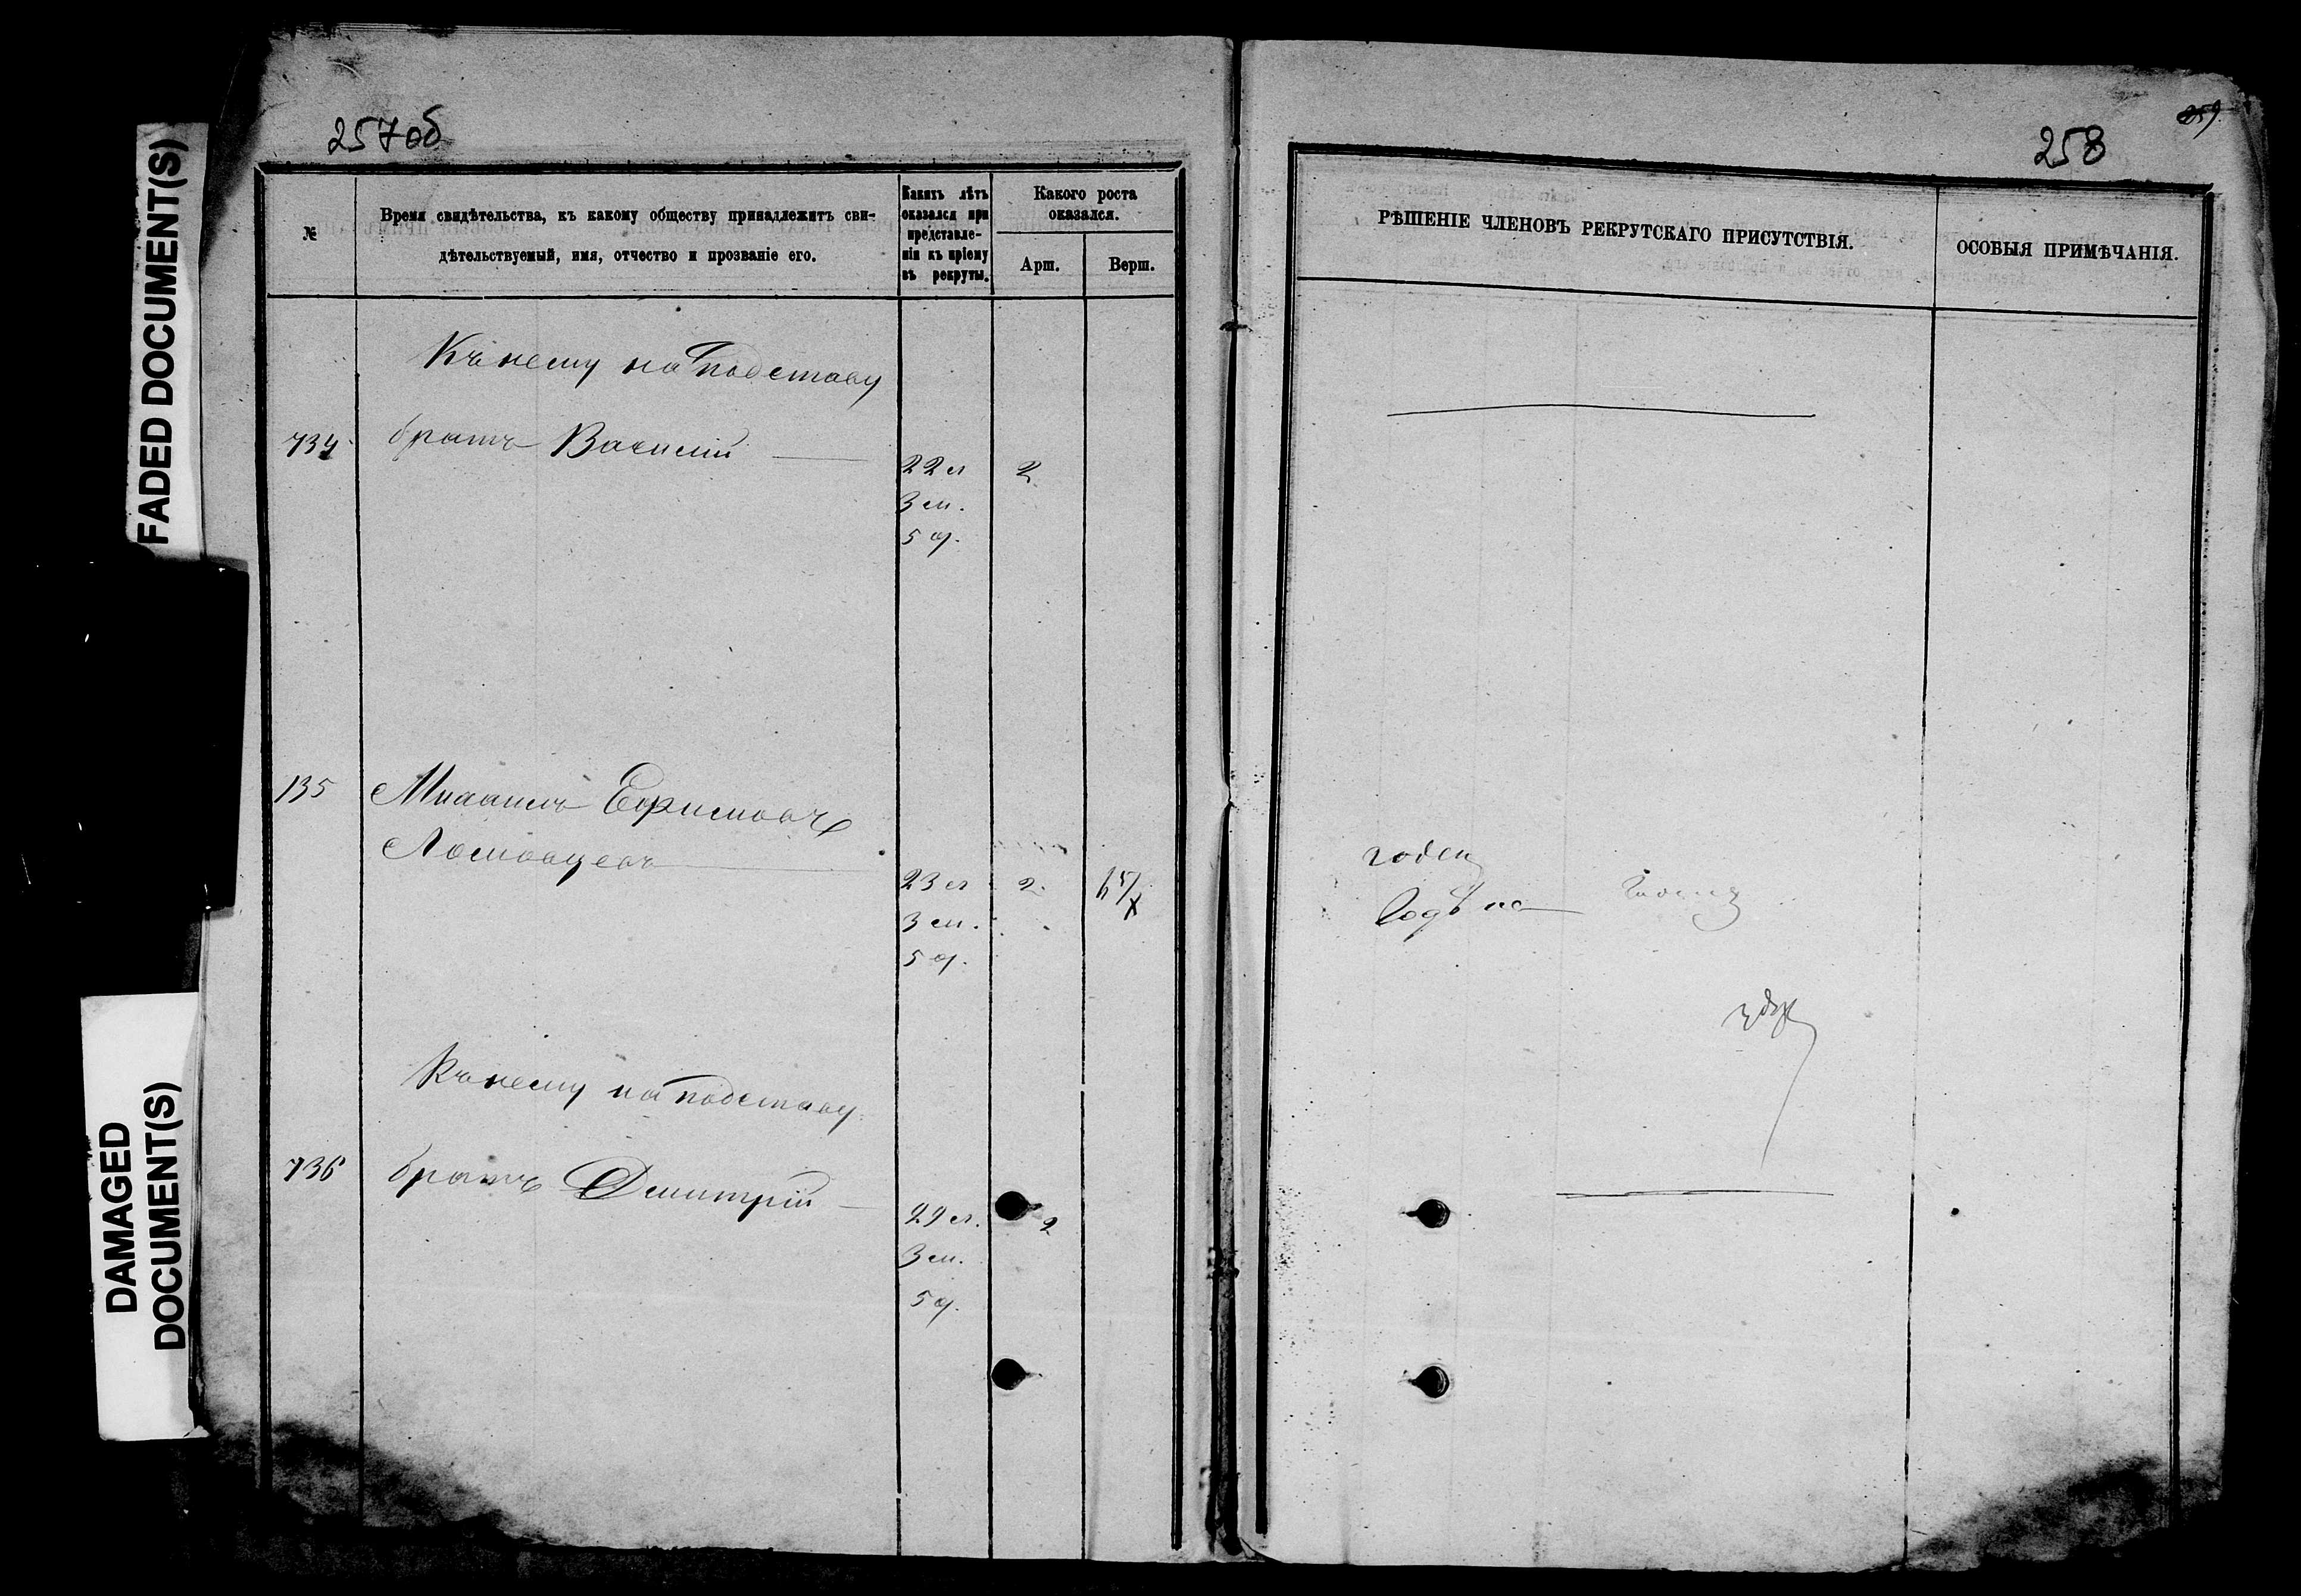 FADED DOCUMENT(S)
DAMAGED
DOCUMENT(S)
257об
№
Время свидѣтельства, къ какому обществу принадлежитъ сви-
дѣтельствуемый, имя, отчество и прозваніе его.
Какихъ лѣтъ
оказался при
представле-
ніи къ пріему
въ рекруты.
Какого роста
оказался.
Арш.
Верш.
Къ нему на подставу
734
братъ Василій
22 л
2
3 м.
5 д.
135
Михаилъ Ефимовъ
Ломовцевъ
23 л
2
3 м.
5 д.
Къ нему на подставу
736
братъ Дмитрій
22 л.
2
3 м.
5 д.
258
259
РѢШЕНІЕ ЧЛЕНОВЪ РЕКРУТСКАГО ПРИСУТСТВІЯ.
ОСОБЫЯ ПРИМѢЧАНІЯ.
годен